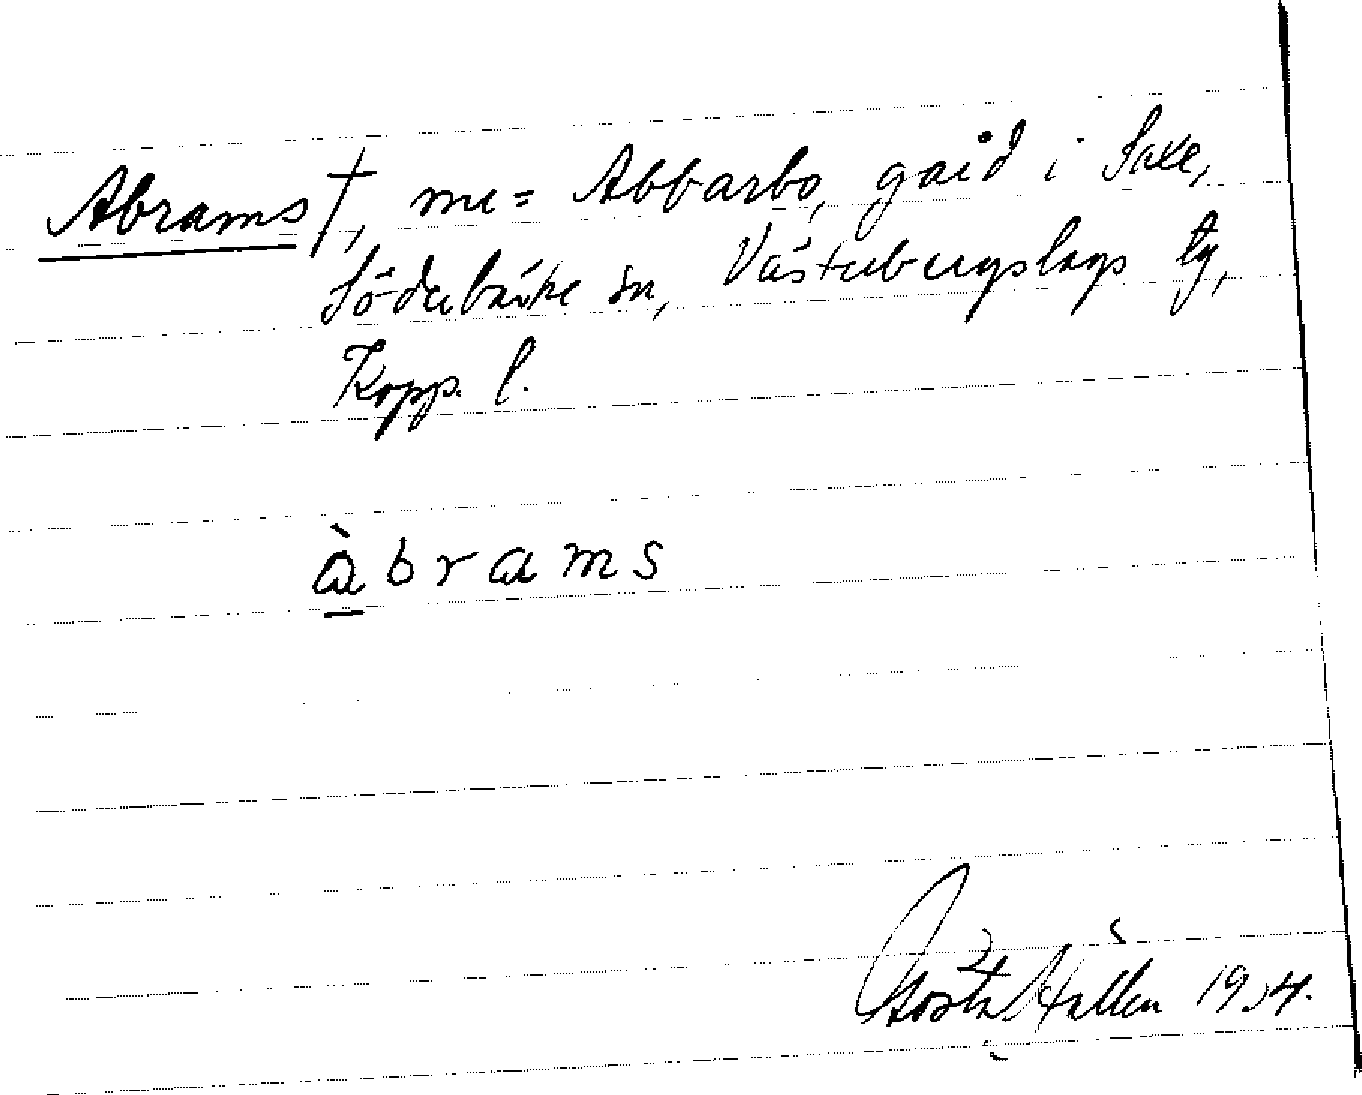 Abrams†, nu = Abbarbo, gård i Saxe,
Söderbärke sn, Västerbergslags tg,
Kopp. l.
àbrams
Gösta Hallén 1934.